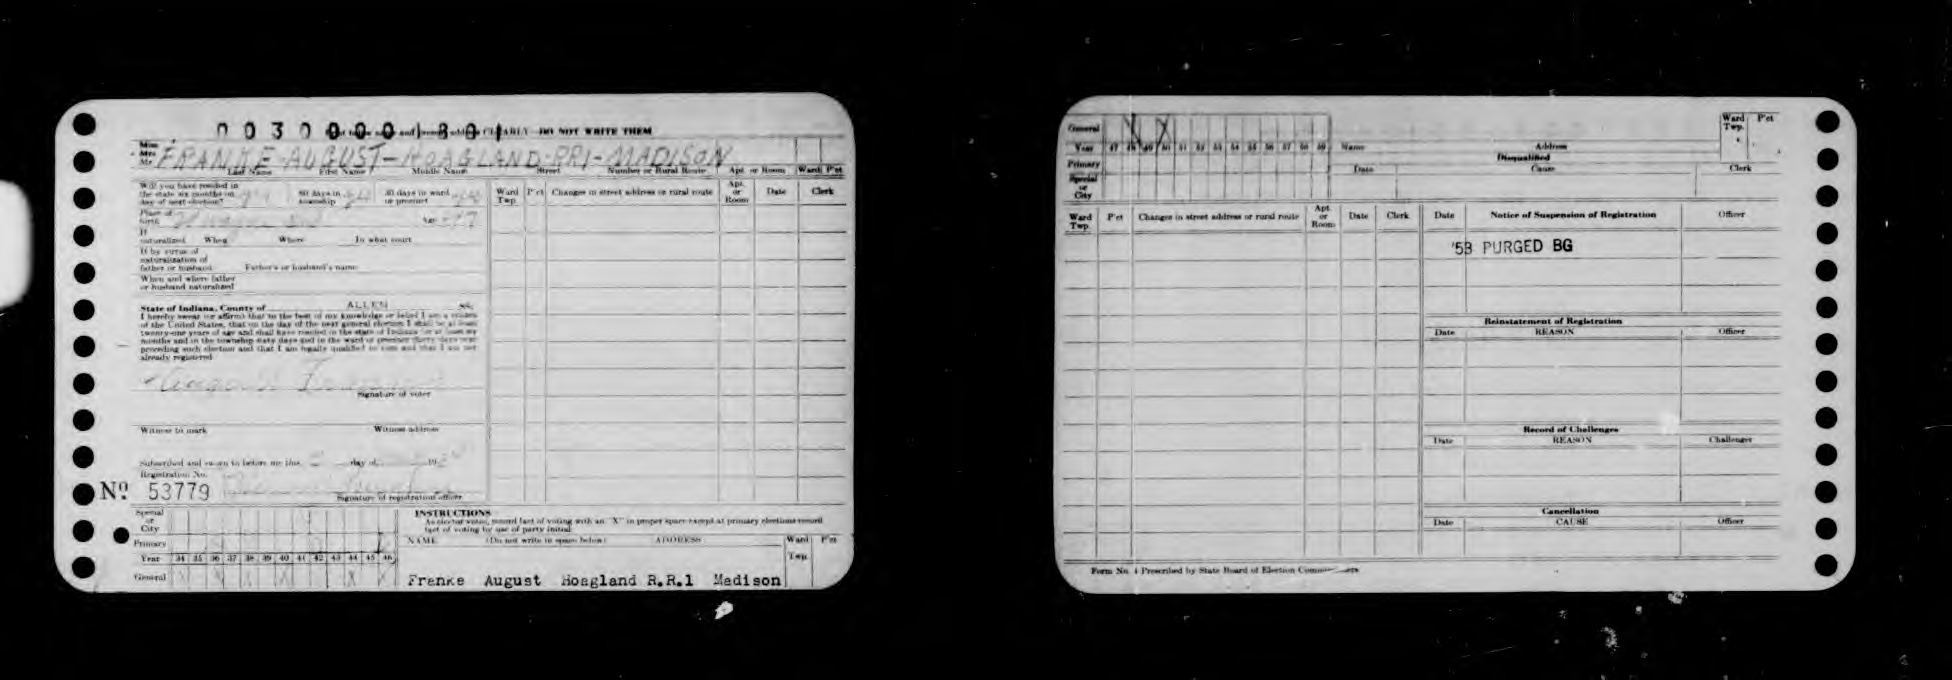 0030000180
CLEARLY—DO NOT WRITE THEM
Miss
Mrs
Mr FRANKE-AUGUST-HOAGLAND-RR1-MADISON
Last Name First Name Middle Name Street Number or Rural Route Apt. or Room Ward P'ct
Will you have resided in
the state six months on
day of next election? 60 days in
township 30 days in ward
or precinct
Place of
birth Age
If
naturalized When Where In what court
If by virtue of
naturalization of
father or husband Father's or husband's name
When and where father
or husband naturalized
State of Indiana, County of ALLEN ss:
I hereby swear (or affirm) that to the best of my knowledge or belief I am a citizen
of the United States, that on the day of the next general election I shall be at least
twenty-one years of age and shall have resided in the state of Indiana for at least six
months and in the township sixty days and in the ward or precinct thirty days next
preceding such election and that I am legally qualified to vote and that I am not
already registered
August Franke
Signature of voter
Witness to mark Witness address
Subscribed and sworn to before me this day of 19
Registration No.
Nº 53779
Signature of registration officer
Ward
Twp. P'ct Changes in street address or rural route Apt.
or
Room Date Clerk
Special
or
City
Primary
Year 34 35 36 37 38 39 40 41 42 43 44 45 46
General X X X X X
INSTRUCTIONS
As elector votes, record fact of voting with an "X" in proper space except at primary elections record
fact of voting by use of party initial
NAME (Do not write in space below) ADDRESS Ward
Twp. P'ct
Franke August Hoagland R.R.1 Madison
General X X
Year 47 48 49 50 51 52 53 54 55 56 57 58 59
Primary
Special
or
City
Name Address
Disqualified
Date Cause Clerk
Ward
Twp. P'ct
Ward
Twp. P'ct Changes in street address or rural route Apt.
or
Room Date Clerk
Date Notice of Suspension of Registration Officer
'53 PURGED BG
Reinstatement of Registration
Date REASON Officer
Record of Challenges
Date REASON Challenger
Cancellation
Date CAUSE Officer
Form No. 4 Prescribed by State Board of Election Commissioners